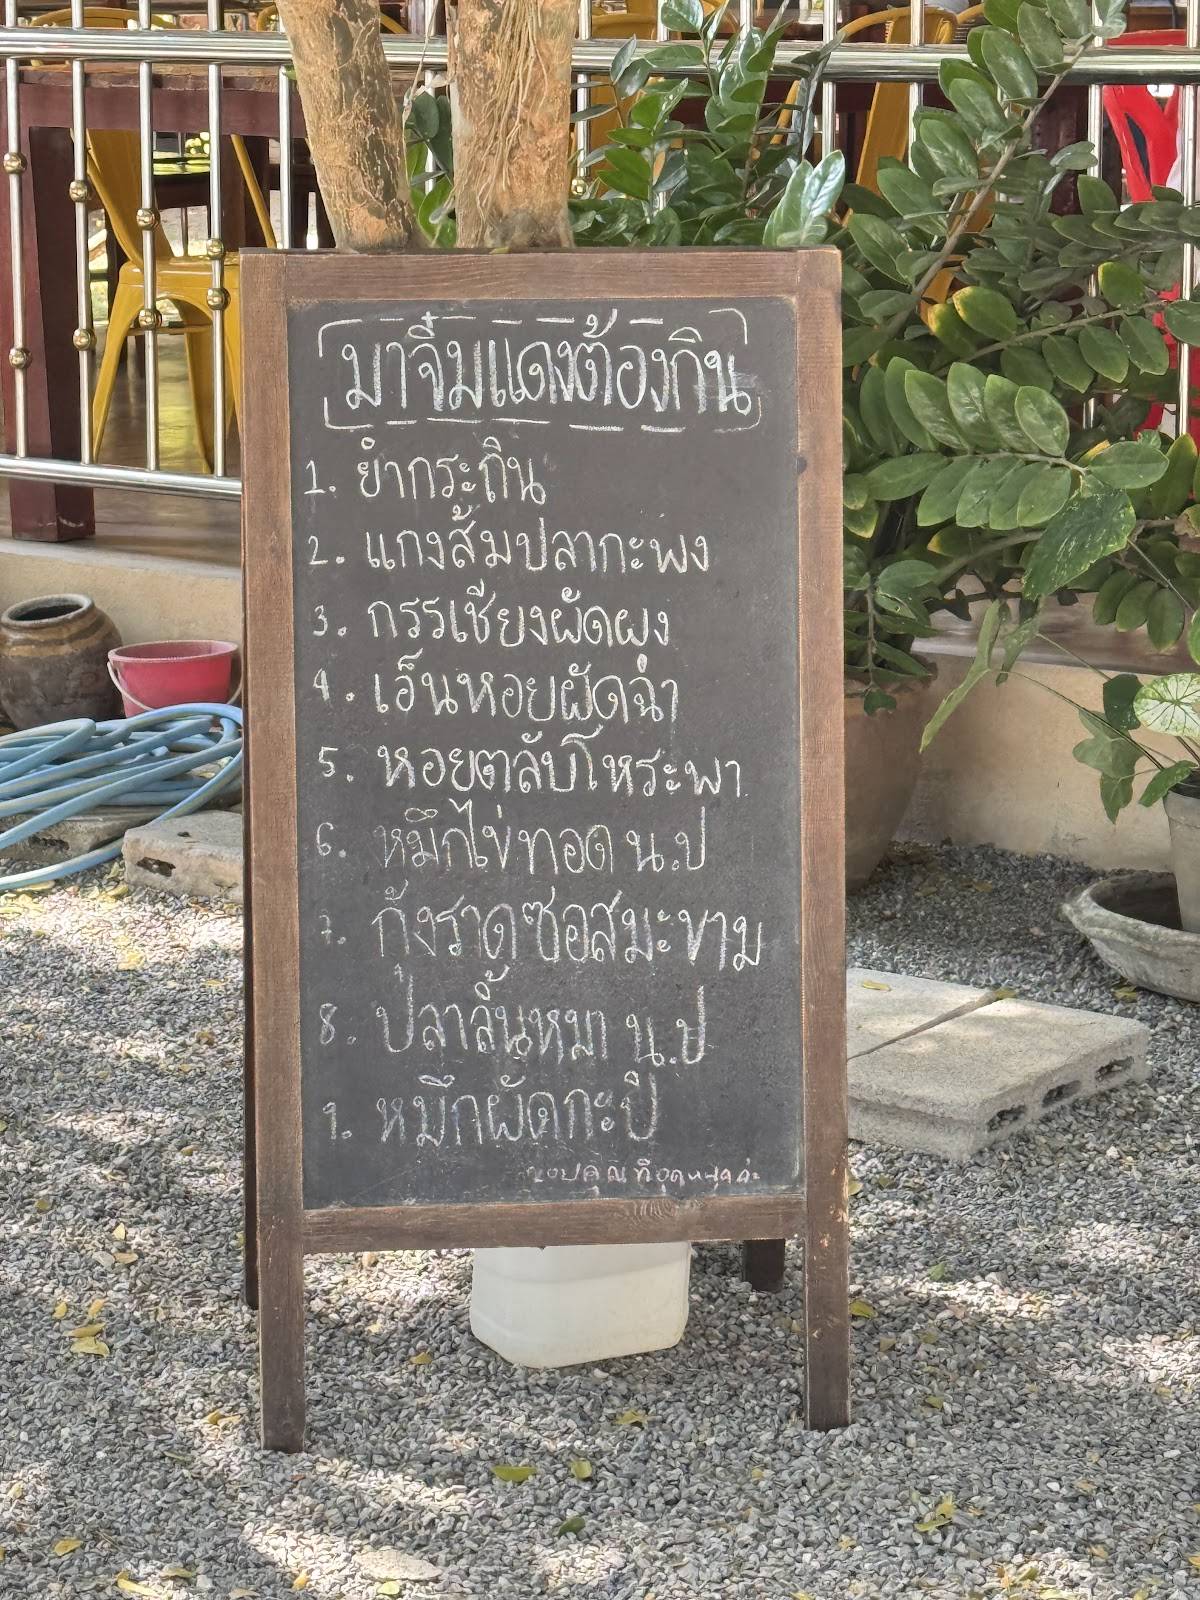 มาจิ๋มแดงต้องกิน
1. ยำกระถิน
2. แกงส้มปลากะพง
3. กรรเชียงผัดผง
4. เอ็นหอยผัดฉ่า
5. หอยตลับโหระพา
6. หมึกไข่ทอด น.ป
7. กุ้งราดซอสมะขาม
8. ปลาลิ้นหมา น.ป
9. หมึกผัดกะปิ
ขอบคุณที่อุดหนุนค่ะ